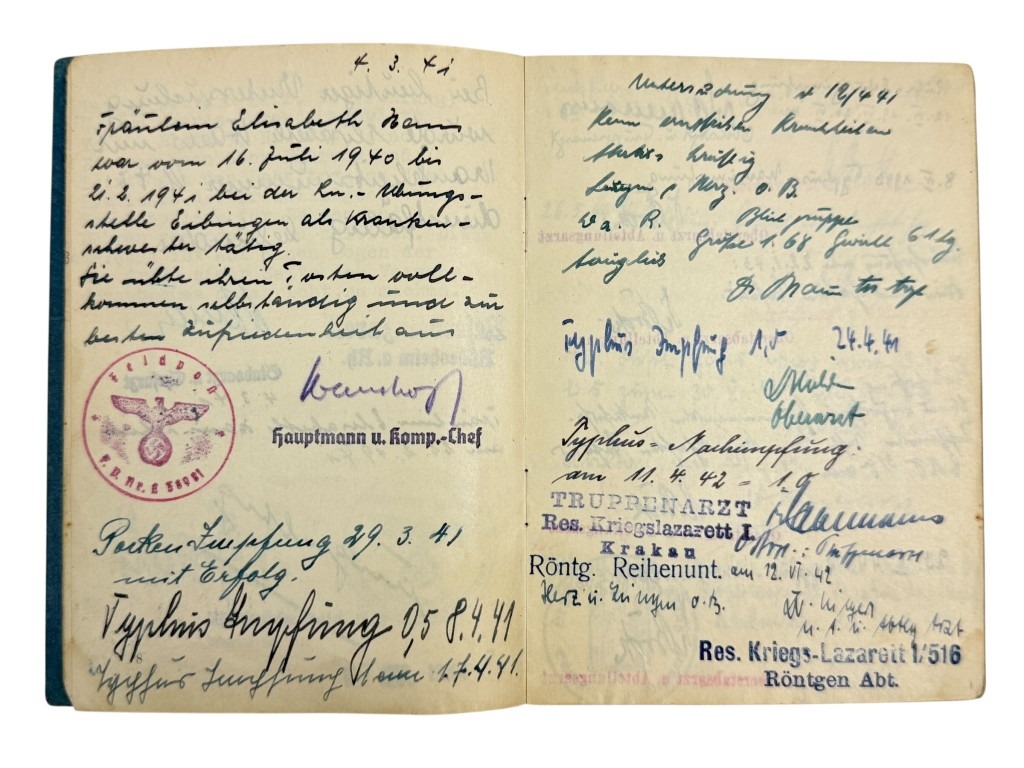 4. 3. 41
Fräulein Elisabeth
war vom 16. Juli 1940 bis
21. 2. 1941 bei der Kr.-Übungs-
stelle Eibingen als Kranken-
schwester tätig.
Sie übte ihren Posten voll-
kommen selbständig und zur
besten Zufriedenheit aus
Feldpost
Hauptmann u. Komp.-Chef
Pocken Impfung 29. 3. 41
mit Erfolg.
Typhus Impfung 0,5 8.4.41
Typhus Impfung 1 am 17.4.41.
Untersuchung 12/4 41
Keine Krankheiten
kräftig
Lungen Herz o. B.
Wa. R. Blutgruppe
Größe 1.68 Gewicht 61 kg.
tauglich
Dr
Typhus Impfung 1,0 24.4.41
Oberarzt
Typhus-Nachimpfung:
am 11. 4. 42 = 1,0
TRUPPENARZT
Res. Kriegslazarett I.
Krakau
Röntg. Reihenunt. am 12. VI. 42
Herz u. Lungen o. B.
u. Abtlg Arzt
Res. Kriegs-Lazarett 1/516
Röntgen Abt.